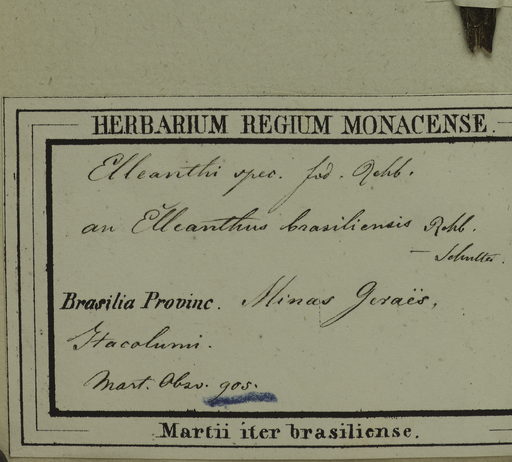 HERBARIUM REGIUM MONACENSE.
Elleanthi spec. fid. Rchb.
an Elleanthus brasiliensis Rchb.
— Schultes.
Brasilia Provinc. Minas Geraës,
Itacolumi.
Mart. Obsv. 905.
Martii iter brasiliense.